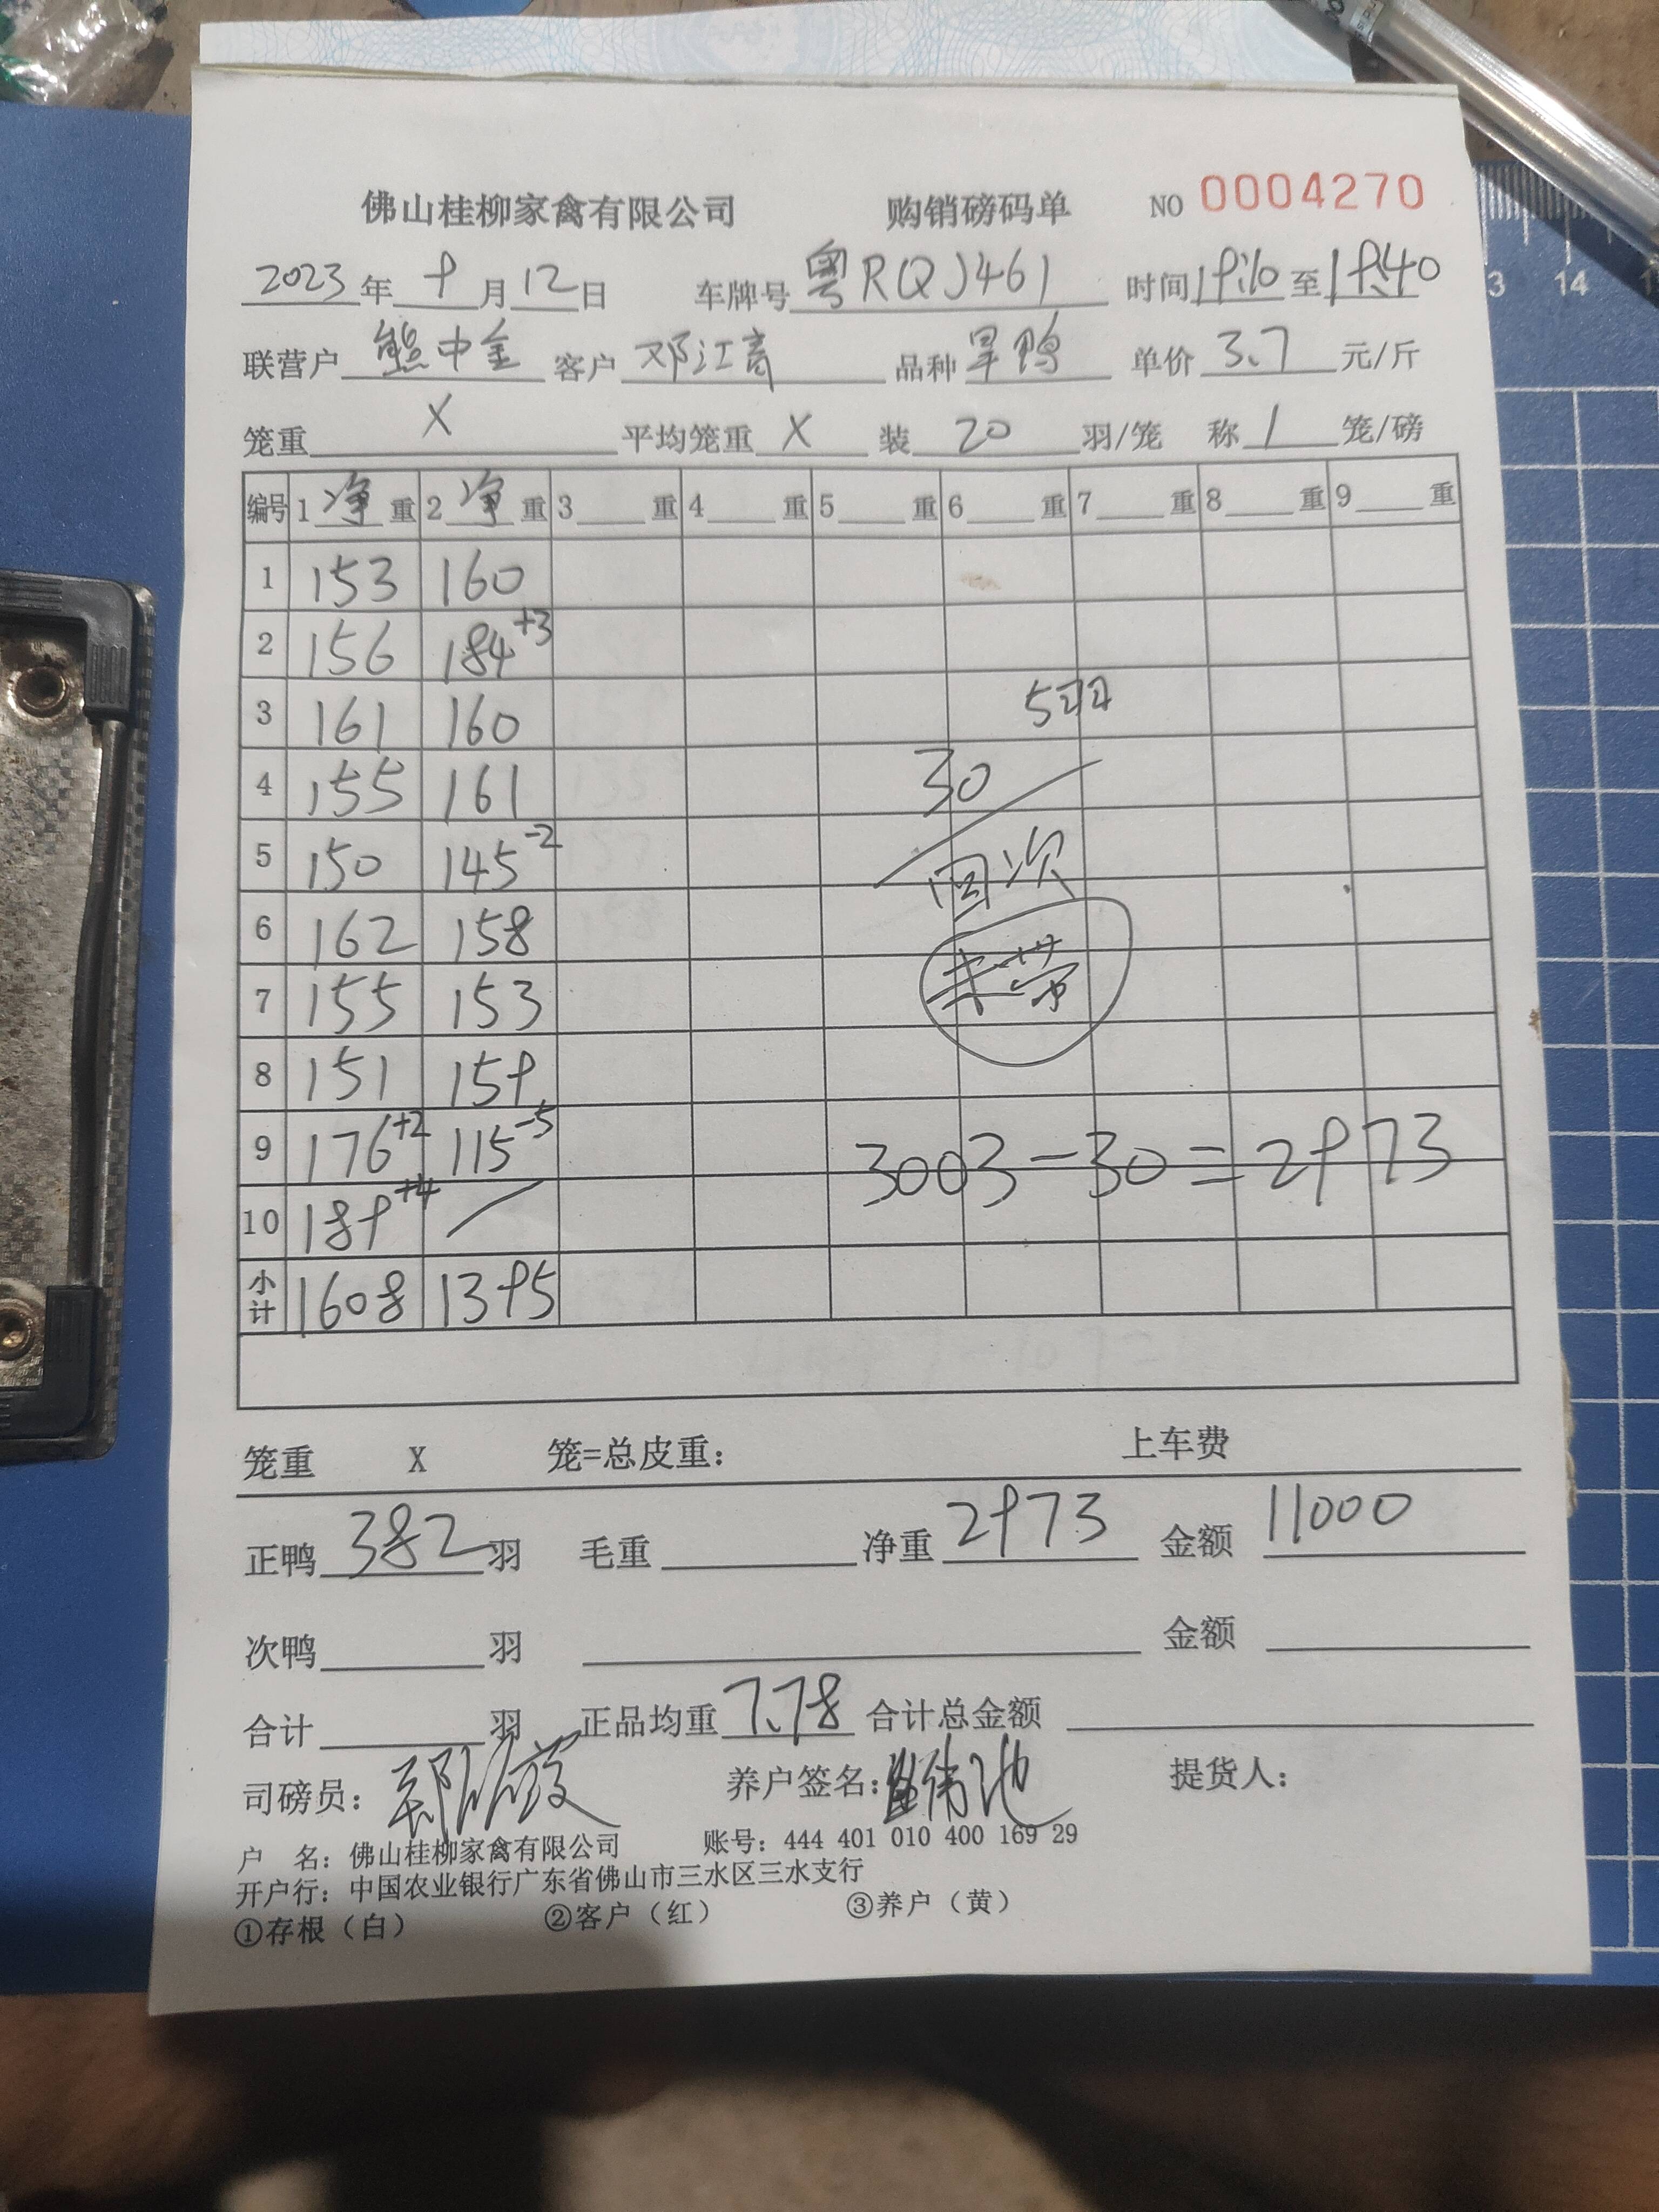 佛山桂柳家禽有限公司 购销磅码单 NO 0004270
2023年9月12日 车牌号 粤RQJ461 时间 19:10 至 19:40
联营户 熊中金 客户 邓江高 品种 旱鸭 单价 3.7 元/斤
笼重 X 平均笼重 X 装 20 羽/笼 称 1 笼/磅
编号 1 净 重 2 净 重 3 重 4 重 5 重 6 重 7 重 8 重 9 重
1 153 160
2 156 184+3
3 161 160 5羽
4 155 161 30
5 150 145-2 回次
6 162 158
7 155 153 未带
8 151 159
9 176+2 115-5 3003-30=2973
10 189+4 /
小计 1608 1395
笼重 X 笼=总皮重: 上车费
正鸭 382 羽 毛重 净重 2973 金额 11000
次鸭 羽 金额
合计 羽 正品均重 7.78 合计总金额
司磅员: 养户签名: 提货人:
户 名: 佛山桂柳家禽有限公司 账号: 444 401 010 400 169 29
开户行: 中国农业银行广东省佛山市三水区三水支行
①存根(白) ②客户(红) ③养户(黄)
13 14